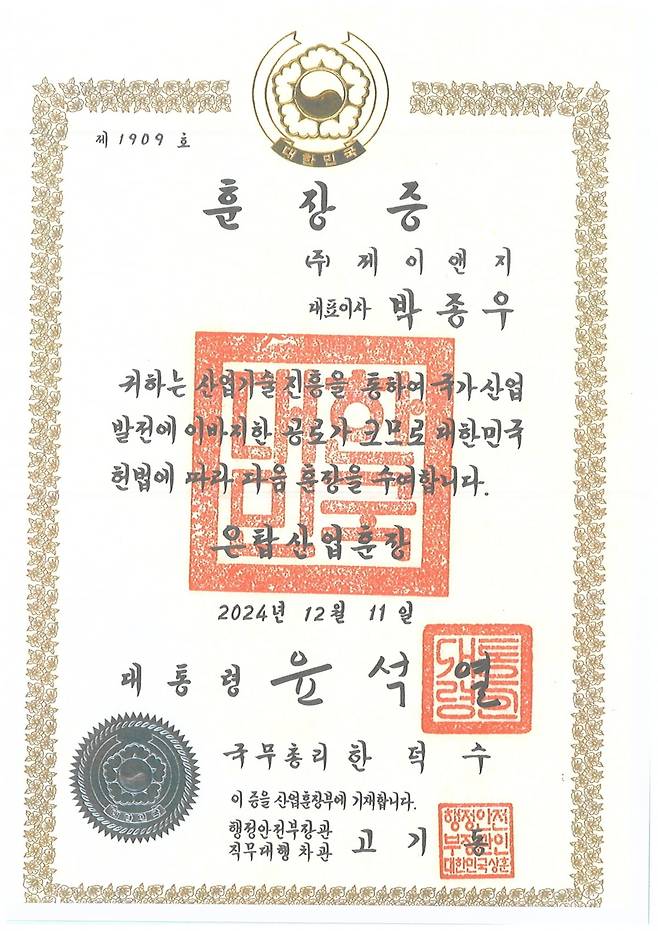 대한민국
제 1909 호
훈장증
(주) 제이앤지
대표이사 박종우
귀하는 산업기술 진흥을 통하여 국가 산업
발전에 이바지한 공로가 크므로 대한민국
헌법에 따라 다음 훈장을 수여합니다.
은탑산업훈장
2024년 12월 11일
대통령 윤석열
국무총리 한덕수
이 증을 산업훈장부에 기재합니다.
행정안전부장관
직무대행 차관 고기동
행정안전
부장관인
대한민국상훈